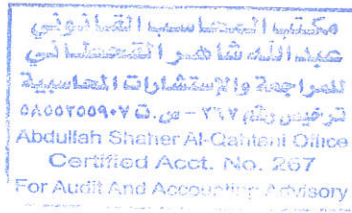 مكتب المحاسب القانوني
عبدالله شاهر القحطاني
للمراجعة والإستشارات المحاسبية
ترخيص رقم ٢٦٧ - س.ت
Abdullah Shaher Al-Qahtani Office
Certified Acct. No. 267
For Audit And Accounting Advisory